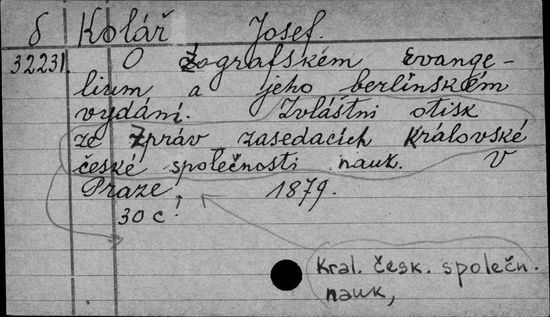 δ Kolář Josef.
32231. O Zografském Evange-
lium a jeho berlínském
vydání. Zvláštní otisk
ze zpráv zasedacích Královské
české společnosti nauk. V
Praze 1879.
30 c.
Kral. česk. společn.
nauk,